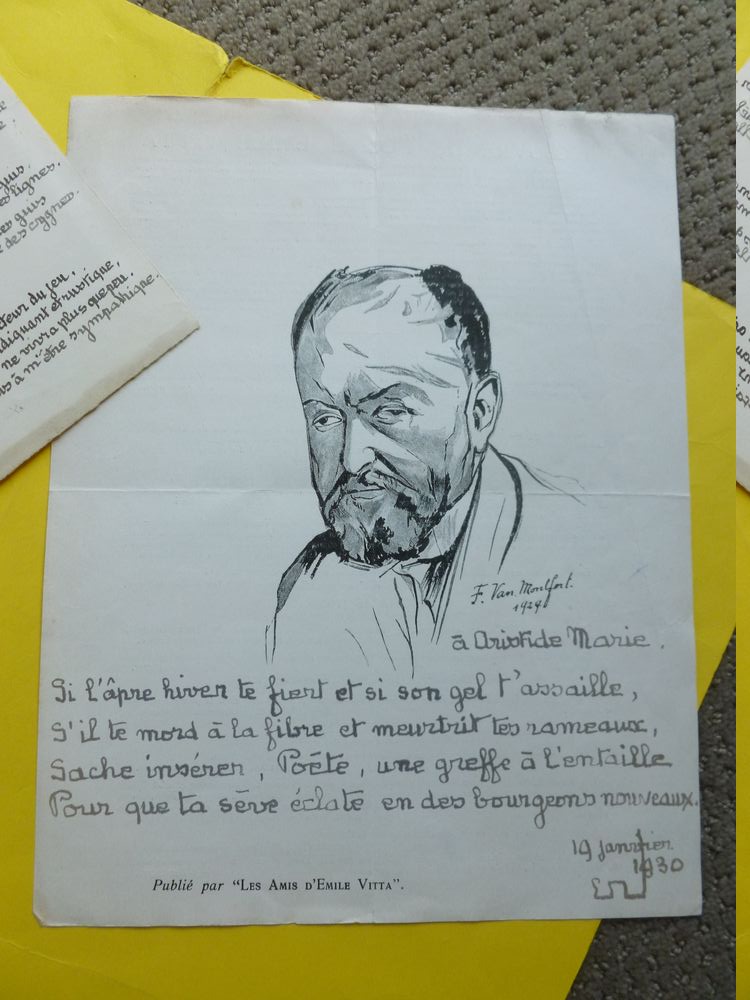 guis.
es lignes.
es guis
e des cygnes.
cteur du jeu,
diguant et rustique,
ne vivra plus que peu.
us à m'être sympathique.
F. Van Montfort.
1924
à Aristide Marie.
Si l'âpre hiver te fiert et si son gel t'assaille,
S'il te mord à la fibre et meurtrit tes rameaux,
Sache insérer, Poëte, une greffe à l'entaille
Pour que ta sève éclate en des bourgeons nouveaux.
19 janvier
1930
Publié par "Les Amis d'Emile Vitta".